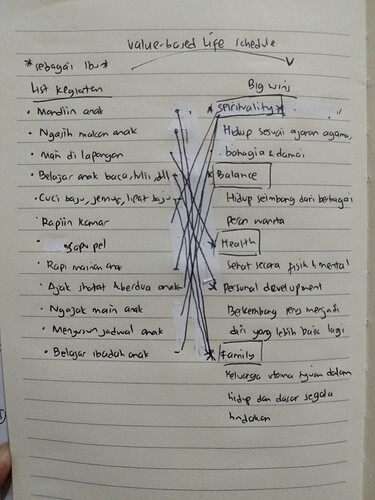 Value-based Life Schedule
*sebagai Ibu*
List kegiatan
Big wins
• Mandiin anak
• Ngasih makan anak
• main di lapangan
• Belajar anak baca, tulis, dll
• Cuci baju, jemur, lipat baju
Rapiin kamar
• sapu pel
• Rapi mainan anak
• Ajak sholat & berdua anak
• Ngajak main anak
• Menyusun jadwal anak
• Belajar ibadah anak
* Spirituality *
Hidup sesuai ajaran agama,
bahagia & damai
* Balance
Hidup seimbang dari berbagai
peran wanita
* Health
Sehat secara fisik & mental
* Personal development
Berkembang terus menjadi
diri yang lebih baik lagi
* Family
Keluarga utama tujuan dalam
hidup dan dasar segala
tindakan